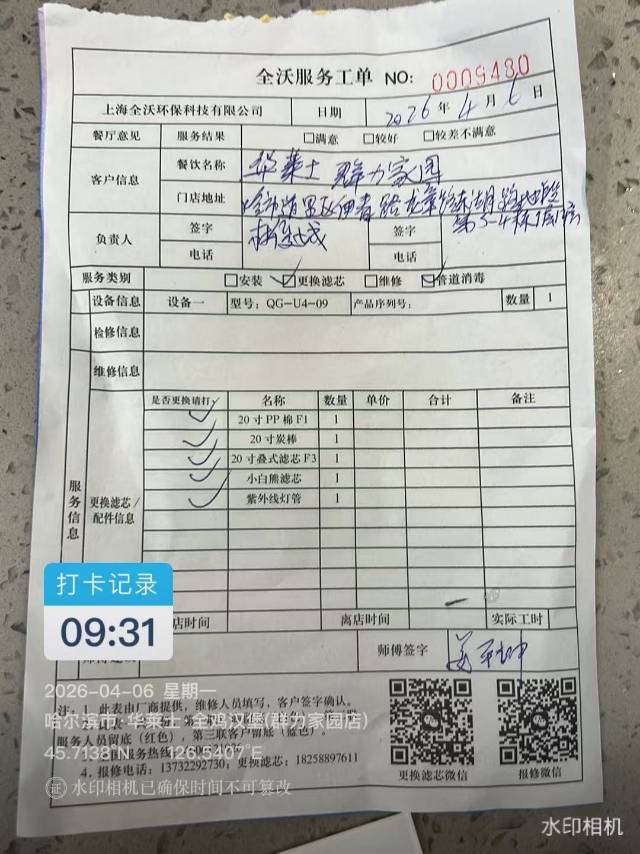 全沃服务工单 NO: 0009480
上海全沃环保科技有限公司 日期 2026年4月6日
餐厅意见 服务结果 □满意 □较好 □较差不满意
客户信息 餐饮名称 华莱士 群力家园
门店地址
负责人 签字 签字
电话 电话
服务类别 □安装 ☑更换滤芯 □维修 ☑管道消毒
设备信息 设备一 型号: QG-U4-09 产品序列号: 数量 1
检修信息
维修信息
服务信息
更换滤芯/配件信息
是否更换请打✓ 名称 数量 单价 合计 备注
✓ 20寸PP棉F1 1
✓ 20寸炭棒 1
✓ 20寸叠式滤芯F3 1
✓ 小白熊滤芯 1
✓ 紫外线灯管 1
店时间 离店时间 实际工时
师傅签字
注: 1. 此表由厂商提供, 维修人员填写, 客户签字确认。
服务人员留底(红色), 第三联客户留底(蓝色)。
服务热线
4. 报修电话: 13732292730; 更换滤芯: 18258897611
更换滤芯微信 报修微信
打卡记录
09:31
2026-04-06 星期一
哈尔滨市·华莱士·全鸡汉堡(群力家园店)
45.7138°N 126.5407°E
证 水印相机已确保时间不可篡改
水印相机